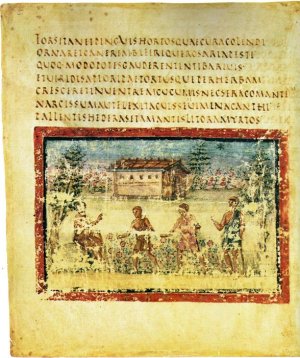 FORSITANETPINGUISHORTOSQUAECURACOLENDI
ORNARETCANEREMBIFERIQUEROSARIAPESTI
QUOQ·MODOPOTISGAUDERENTINTIBARIUIS
ETUIRIDISAPIORIPAETORTUSQ·PERHERBAM
CRESCERETINUENTREMCUCUMISNECSERACOMANTE
NARCISSUMAUTFLEXITACUISSEMUIMENACANTHI
PALLENTISHEDERASETAMANTISLITORAMYRTOS